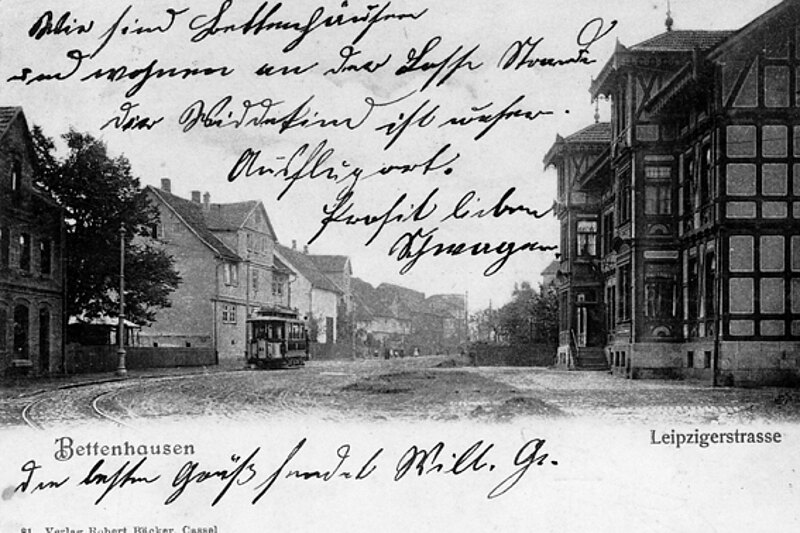 Wir sind Bettenhäuser
und wohnen an der Losse Strand
der Widdekind ist unser
Ausflugort.
Prosit lieben
Schwager.
Bettenhausen
Leipzigerstrasse
die besten Grüß sendet Will. Gr.
81 Verlag Robert Bäcker, Cassel